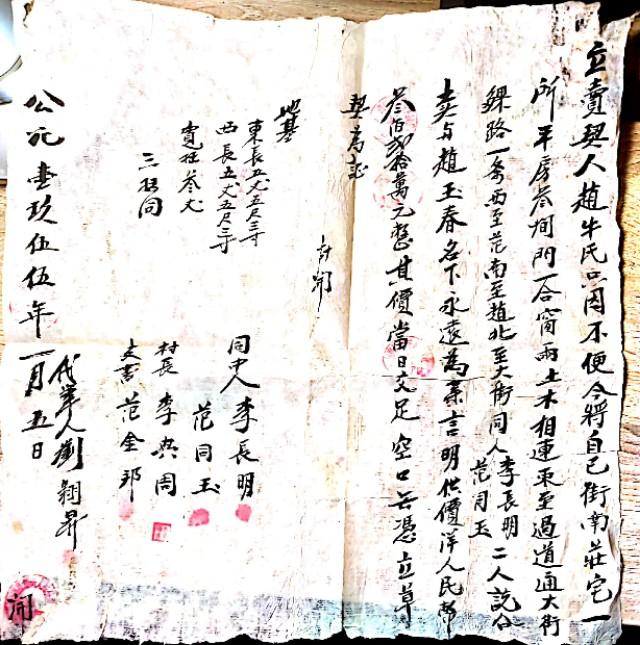 立賣契人趙牛氏只因不便今將自己街南莊宅一
所平房叁间門一合窗兩土木相連東至過道通大街
踩路一条西至范南至趙北至大街同人李長明范同玉二人説合
卖与趙玉春名下永遠為業言明作價洋人民幣
叁佰貳拾萬元整其價當日交足空口无憑立草
契为証
地基
東長五丈五尺三寸
西長五丈五尺三寸
寬叁丈
三極同
同中人李長明
范同玉
村長李典周
文書范金邦
代筆人劉翔昇
公元壹玖伍伍年一月五日